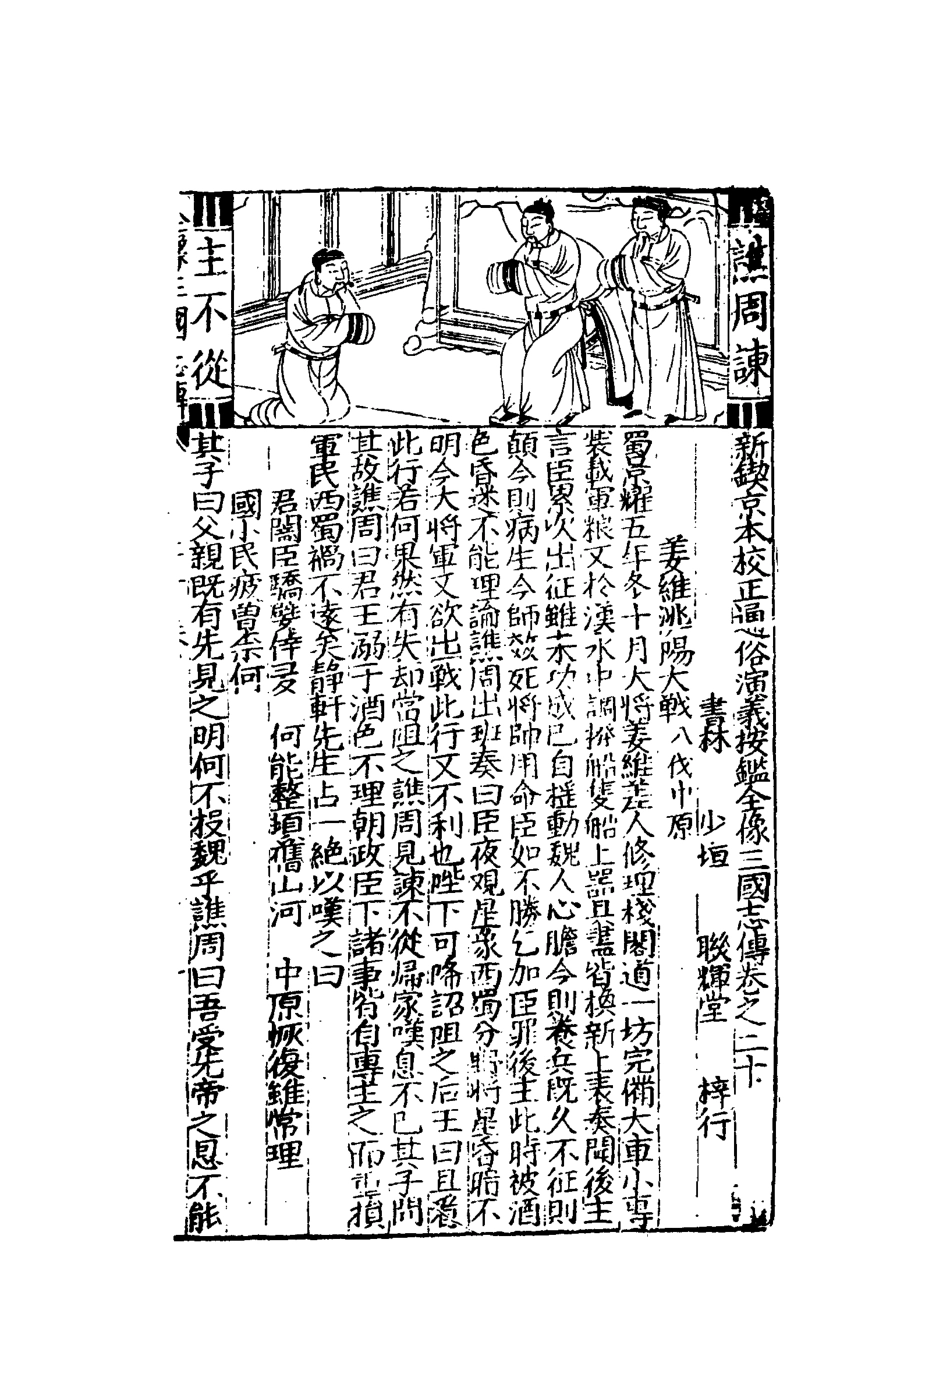 譙周諫
主不從
新鍥京本校正通俗演義按鑑全像三國志傳卷之二十
書林 少垣 聯輝堂 梓行
姜維洮陽大戰 八伐中原
蜀景耀五年冬十月大將姜維差人修理棧閣道一坊完備大車小專
裝載軍粮又於漢水中調撥船隻船上器具盡皆換新上表奏聞後主
言臣累次出征雖未功成已自撻動魏人心膽今則養兵既久不征則
顛今則病生今師效死將帥用命臣如不勝乞加臣罪後主此時被酒
色昏迷不能理論譙周出班奏曰臣夜觀星象西蜀分野將星昏暗不
明今大將軍又欲出戰此行又不利也陛下可降詔阻之后王曰且看
此行若何果然有失却當阻之譙周見諫不從歸家嘆息不已其子問
其故譙周曰君王溺于酒色不理朝政臣下諸事皆自專主之而損
軍民西蜀禍不遠矣靜軒先生占一絶以嘆之曰
君闇臣驕嬖倖多 何能整頓舊山河 中原恢復雖常理
國小民疲曾奈何
其子曰父親既有先見之明何不投魏乎譙周曰吾受先帝之恩不能